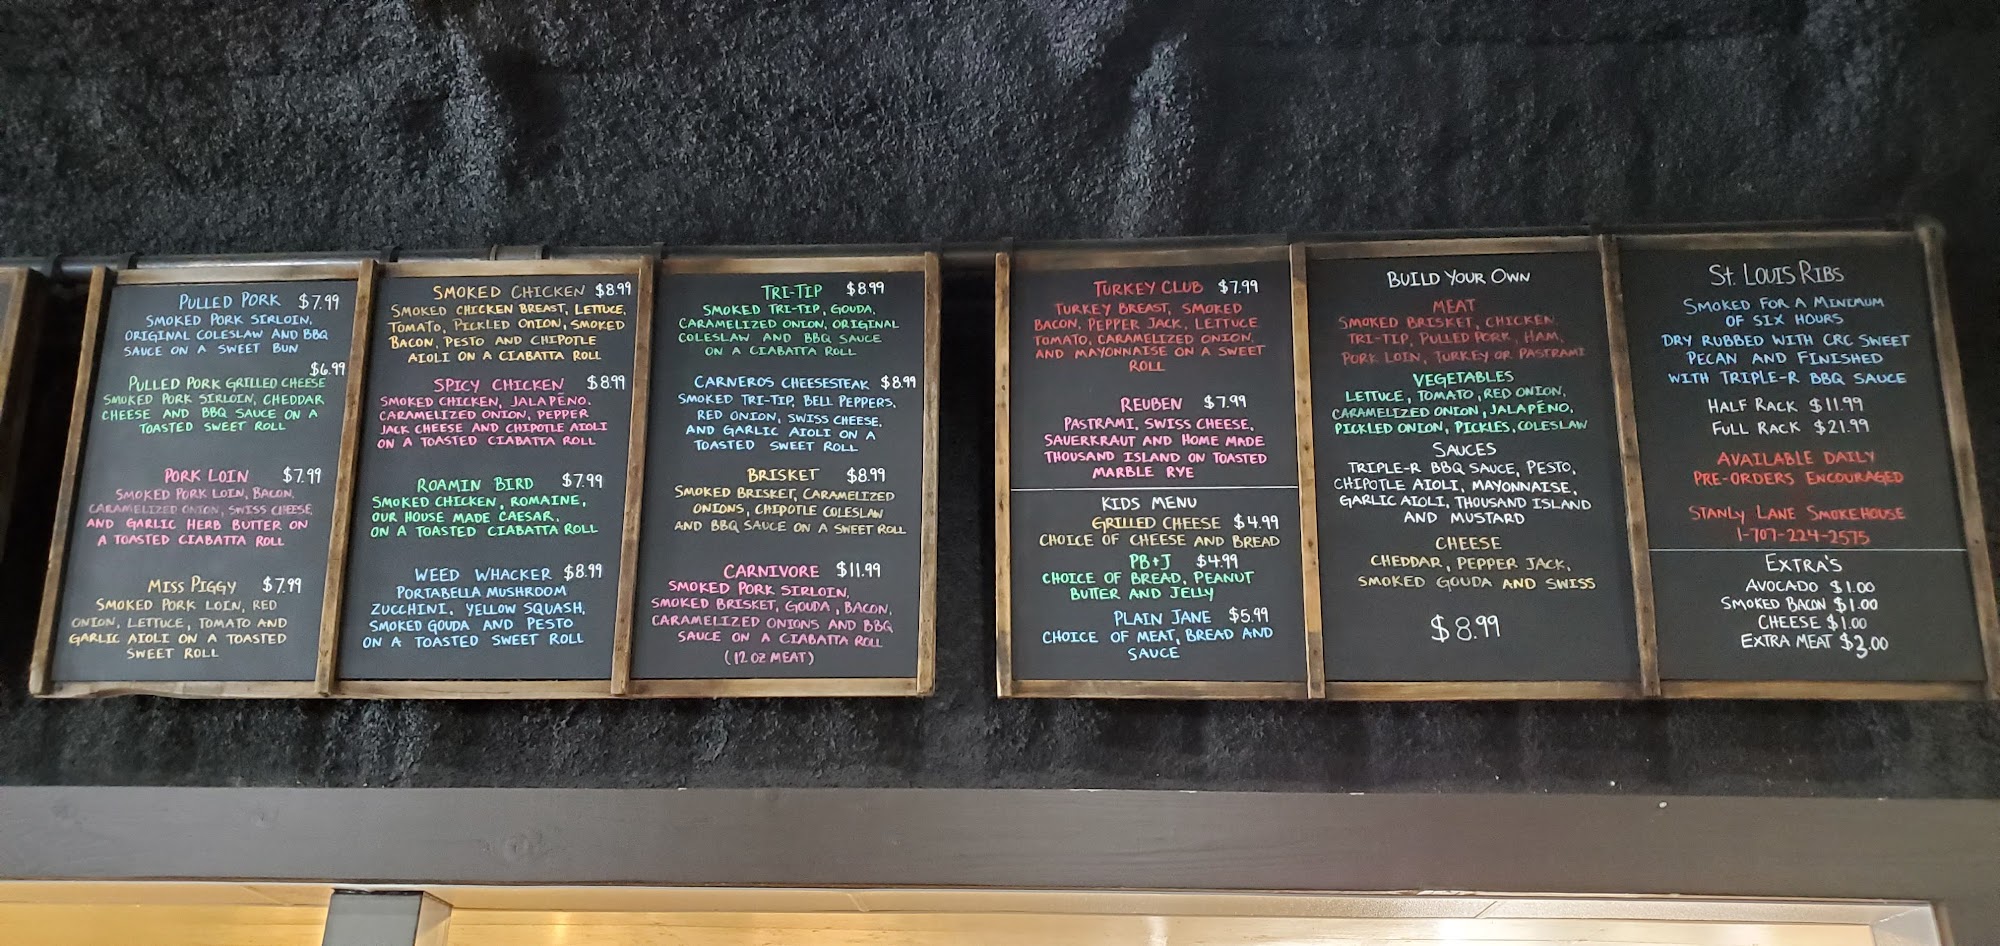 PULLED PORK $7.99
SMOKED PORK SIRLOIN,
ORIGINAL COLESLAW AND BBQ
SAUCE ON A SWEET BUN
$6.99
PULLED PORK GRILLED CHEESE
SMOKED PORK SIRLOIN, CHEDDAR
CHEESE AND BBQ SAUCE ON A
TOASTED SWEET ROLL
PORK LOIN $7.99
SMOKED PORK LOIN, BACON,
CARAMELIZED ONION, SWISS CHEESE,
AND GARLIC HERB BUTTER ON
A TOASTED CIABATTA ROLL
MISS PIGGY $7.99
SMOKED PORK LOIN, RED
ONION, LETTUCE, TOMATO AND
GARLIC AIOLI ON A TOASTED
SWEET ROLL
SMOKED CHICKEN $8.99
SMOKED CHICKEN BREAST, LETTUCE,
TOMATO, PICKLED ONION, SMOKED
BACON, PESTO AND CHIPOTLE
AIOLI ON A CIABATTA ROLL
SPICY CHICKEN $8.99
SMOKED CHICKEN, JALAPEÑO,
CARAMELIZED ONION, PEPPER
JACK CHEESE AND CHIPOTLE AIOLI
ON A TOASTED CIABATTA ROLL
ROAMIN BIRD $7.99
SMOKED CHICKEN, ROMAINE,
OUR HOUSE MADE CAESAR,
ON A TOASTED CIABATTA ROLL
WEED WHACKER $8.99
PORTABELLA MUSHROOM
ZUCCHINI, YELLOW SQUASH,
SMOKED GOUDA AND PESTO
ON A TOASTED SWEET ROLL
TRI-TIP $8.99
SMOKED TRI-TIP, GOUDA,
CARAMELIZED ONION, ORIGINAL
COLESLAW AND BBQ SAUCE
ON A CIABATTA ROLL
CARNEROS CHEESESTEAK $8.99
SMOKED TRI-TIP, BELL PEPPERS,
RED ONION, SWISS CHEESE,
AND GARLIC AIOLI ON A
TOASTED SWEET ROLL
BRISKET $8.99
SMOKED BRISKET, CARAMELIZED
ONIONS, CHIPOTLE COLESLAW
AND BBQ SAUCE ON A SWEET ROLL
CARNIVORE $11.99
SMOKED PORK SIRLOIN,
SMOKED BRISKET, GOUDA, BACON,
CARAMELIZED ONIONS AND BBQ
SAUCE ON A CIABATTA ROLL
(12 OZ MEAT)
TURKEY CLUB $7.99
TURKEY BREAST, SMOKED
BACON, PEPPER JACK, LETTUCE
TOMATO, CARAMELIZED ONION,
AND MAYONNAISE ON A SWEET
ROLL
REUBEN $7.99
PASTRAMI, SWISS CHEESE,
SAUERKRAUT AND HOME MADE
THOUSAND ISLAND ON TOASTED
MARBLE RYE
KIDS MENU
GRILLED CHEESE $4.99
CHOICE OF CHEESE AND BREAD
PB+J $4.99
CHOICE OF BREAD, PEANUT
BUTTER AND JELLY
PLAIN JANE $5.99
CHOICE OF MEAT, BREAD AND
SAUCE
BUILD YOUR OWN
MEAT
SMOKED BRISKET, CHICKEN,
TRI-TIP, PULLED PORK, HAM,
PORK LOIN, TURKEY OR PASTRAMI
VEGETABLES
LETTUCE, TOMATO, RED ONION,
CARAMELIZED ONION, JALAPEÑO,
PICKLED ONION, PICKLES, COLESLAW
SAUCES
TRIPLE-R BBQ SAUCE, PESTO,
CHIPOTLE AIOLI, MAYONNAISE,
GARLIC AIOLI, THOUSAND ISLAND
AND MUSTARD
CHEESE
CHEDDAR, PEPPER JACK,
SMOKED GOUDA AND SWISS
$8.99
ST. LOUIS RIBS
SMOKED FOR A MINIMUM
OF SIX HOURS
DRY RUBBED WITH CRC SWEET
PECAN AND FINISHED
WITH TRIPLE-R BBQ SAUCE
HALF RACK $11.99
FULL RACK $21.99
AVAILABLE DAILY
PRE-ORDERS ENCOURAGED
STANLY LANE SMOKEHOUSE
1-707-224-2575
EXTRA'S
AVOCADO $1.00
SMOKED BACON $1.00
CHEESE $1.00
EXTRA MEAT $3.00